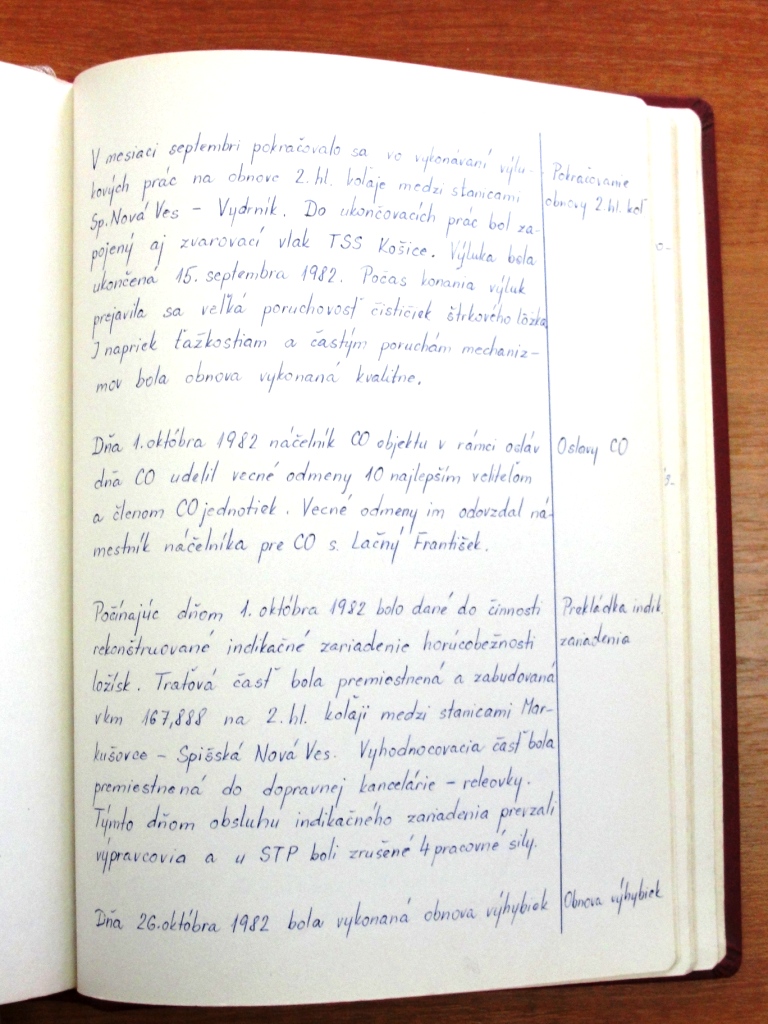 V mesiaci septembri pokračovalo sa vo vykonávaní výlu-
kových prác na obnove 2. hl. koľaje medzi stanicami
Sp. Nová Ves – Vydrník. Do ukončovacích prác bol za-
pojený aj zvarovací vlak TSS Košice. Výluka bola
ukončená 15. septembra 1982. Počas konania výluk
prejavila sa veľká poruchovosť čističiek štrkového lôžka
I napriek ťažkostiam a častým poruchám mechaniz-
mov bola obnova vykonaná kvalitne.
Pokračovanie
obnovy 2. hl. koľ
Dňa 1. októbra 1982 náčelník CO objektu v rámci osláv
dňa CO udelil vecné odmeny 10 najlepším veliteľom
a členom CO jednotiek. Vecné odmeny im odovzdal ná-
mestník náčelníka pre CO s. Lačný František.
Oslavy CO
Počínajúc dňom 1. októbra 1982 bolo dané do činnosti
rekonštruované indikačné zariadenie horúcobežnosti
ložísk. Traťová časť bola premiestnená a zabudovaná
v km 167,888 na 2. hl. koľaji medzi stanicami Mar-
kušovce – Spišská Nová Ves. Vyhodnocovacia časť bola
premiestnená do dopravnej kancelárie – releovky.
Týmto dňom obsluhu indikačného zariadenia prevzali
výpravcovia a u STP boli zrušené 4 pracovné sily.
Prekládka indik.
zariadenia
Dňa 26. októbra 1982 bola vykonaná obnova výhybiek
Obnova výhybiek